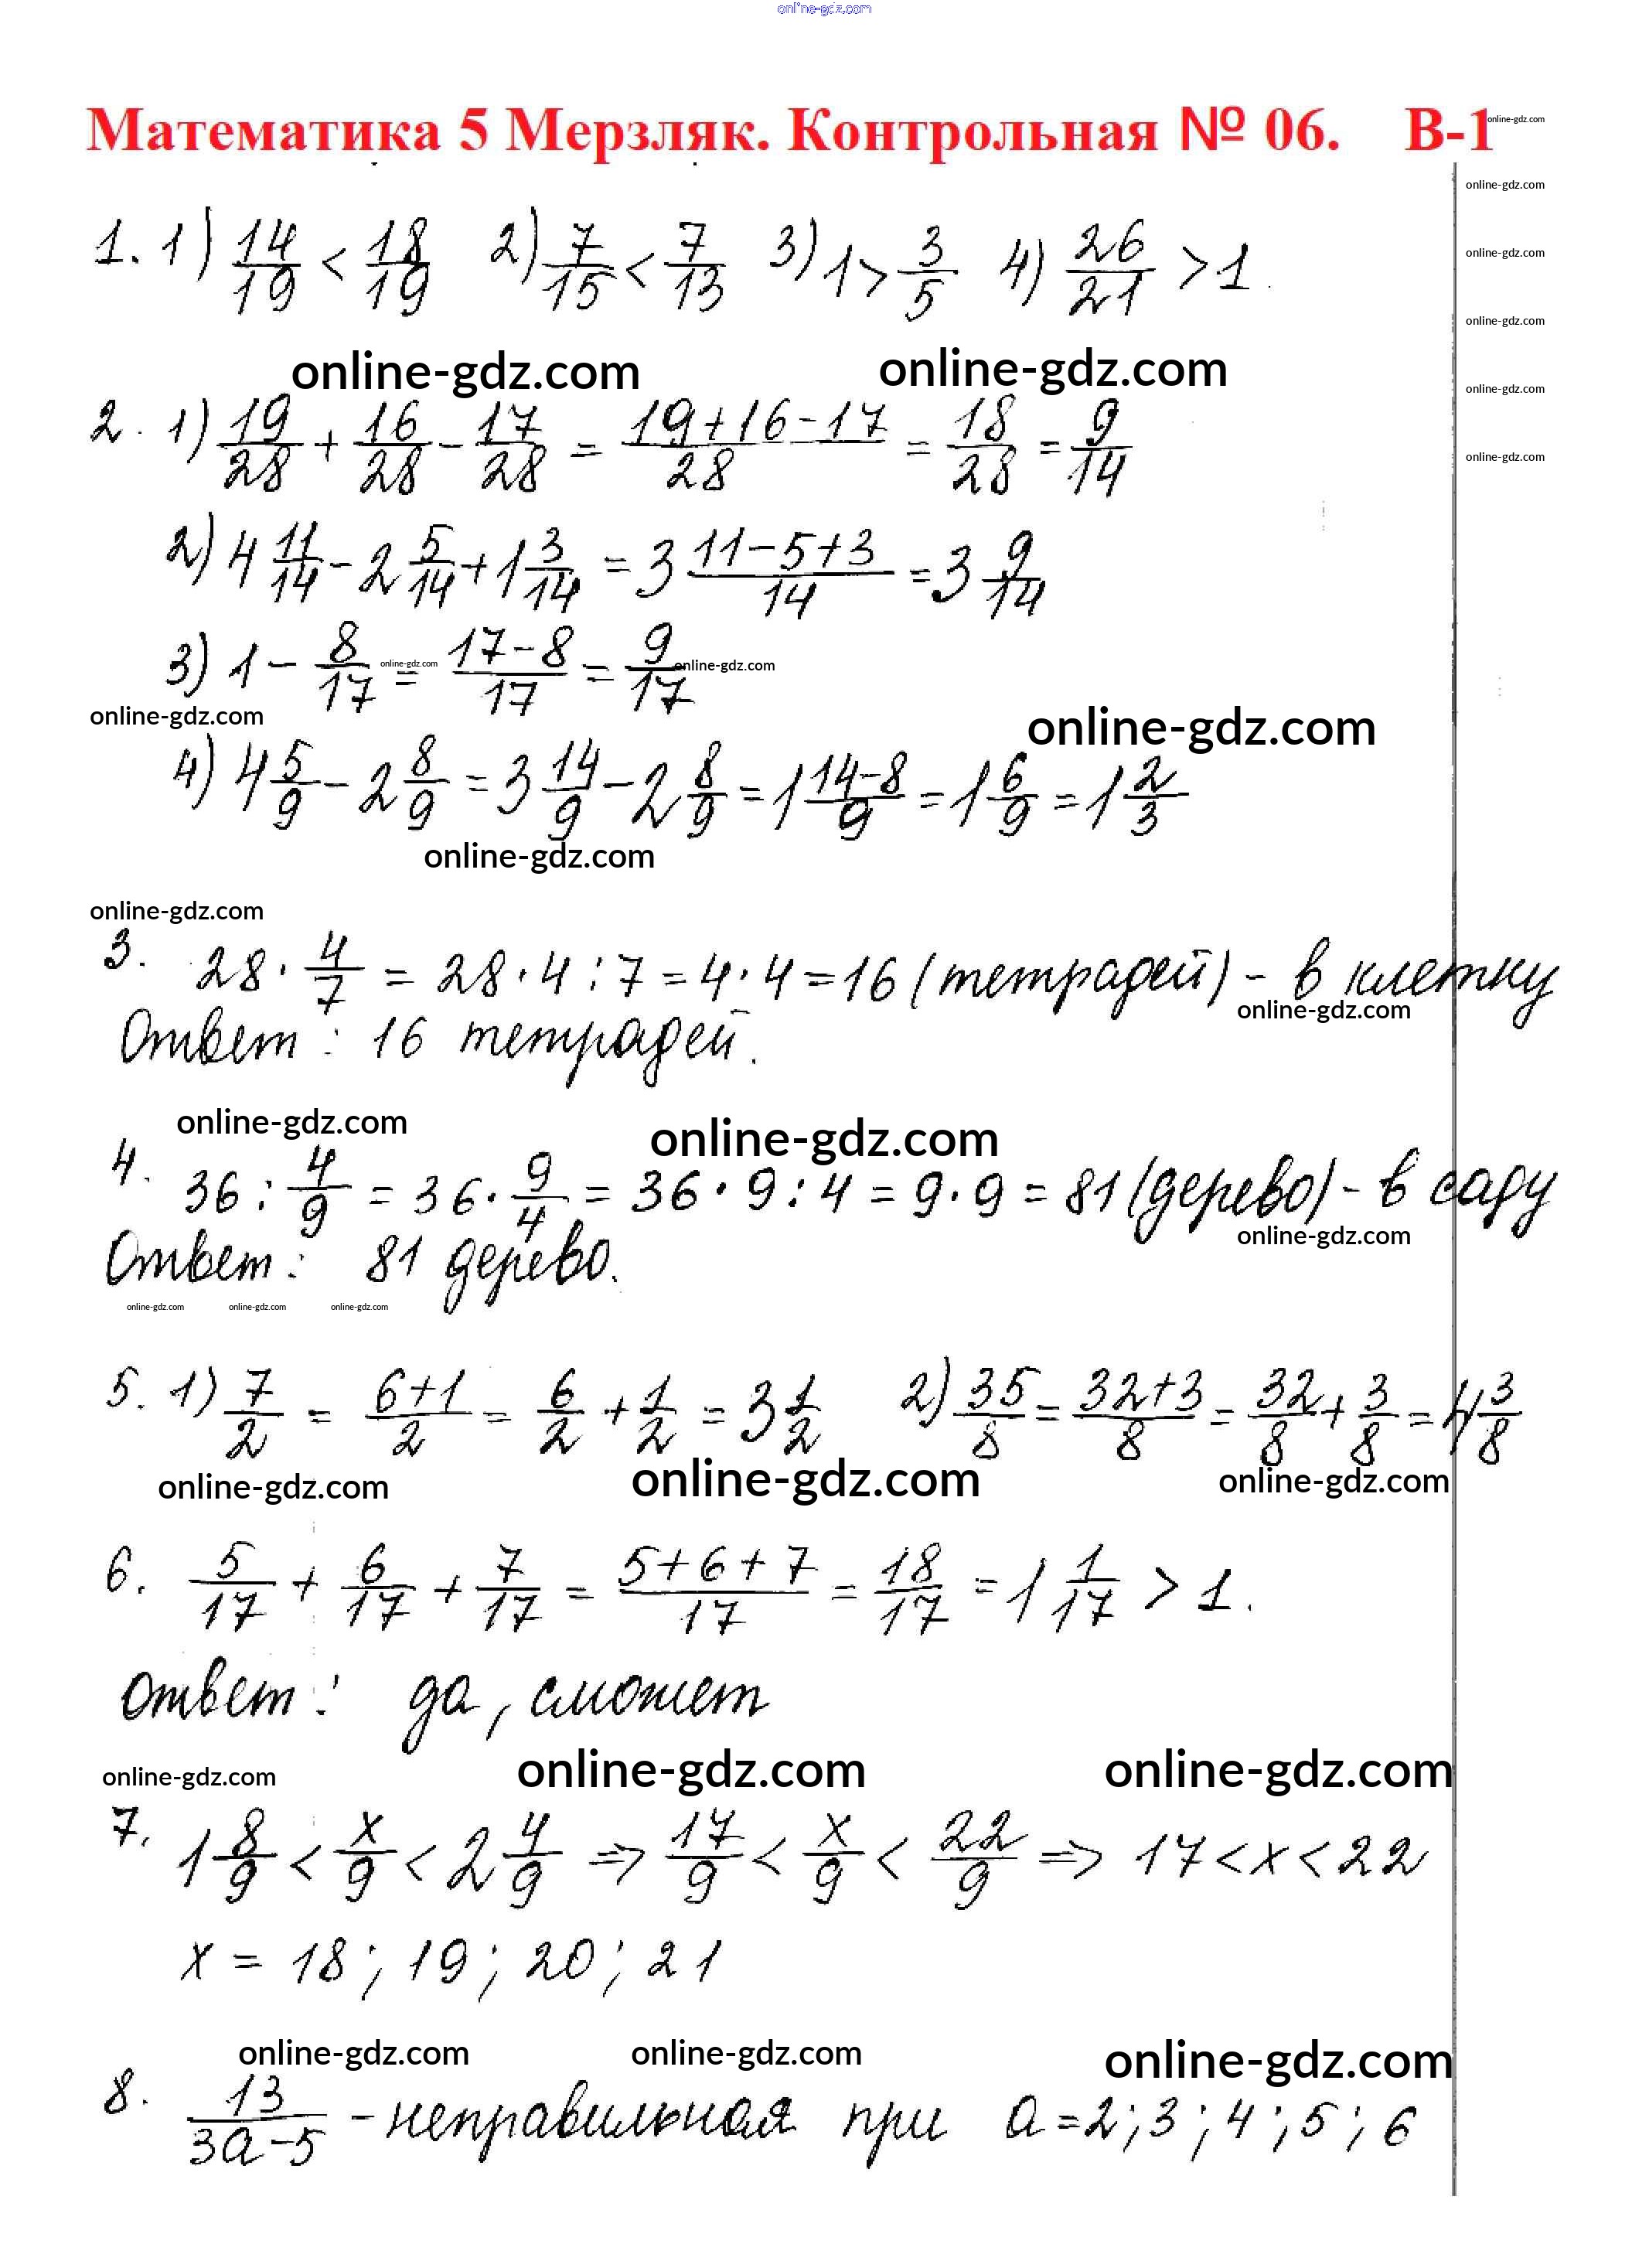 online-gdz.com
Математика 5 Мерзляк. Контрольная № 06. В-1
online-gdz.com
online-gdz.com
1. 1) 14/19 < 18/19 2) 7/15 < 7/13 3) 1 > 3/5 4) 26/21 > 1
online-gdz.com
online-gdz.com
online-gdz.com online-gdz.com
online-gdz.com
2. 1) 19/28 + 16/28 - 17/28 = (19+16-17)/28 = 18/28 = 9/14
online-gdz.com
2) 4 11/14 - 2 5/14 + 1 3/14 = 3 (11-5+3)/14 = 3 9/14
3) 1 - 8/17 = (17-8)/17 = 9/17
online-gdz.com online-gdz.com
online-gdz.com online-gdz.com
4) 4 5/9 - 2 8/9 = 3 14/9 - 2 8/9 = 1 (14-8)/9 = 1 6/9 = 1 2/3
online-gdz.com
online-gdz.com
3. 28 · 4/7 = 28 · 4 : 7 = 4 · 4 = 16 (тетрадей) - в клетку
online-gdz.com
Ответ: 16 тетрадей.
online-gdz.com online-gdz.com
4. 36 : 4/9 = 36 · 9/4 = 36 · 9 : 4 = 9 · 9 = 81 (дерево) - в саду
online-gdz.com
Ответ: 81 дерево.
online-gdz.com online-gdz.com online-gdz.com
5. 1) 7/2 = (6+1)/2 = 6/2 + 1/2 = 3 1/2 2) 35/8 = (32+3)/8 = 32/8 + 3/8 = 4 3/8
online-gdz.com online-gdz.com online-gdz.com
6. 5/17 + 6/17 + 7/17 = (5+6+7)/17 = 18/17 = 1 1/17 > 1.
Ответ: да, сможет
online-gdz.com online-gdz.com online-gdz.com
7. 1 8/9 < x/9 < 2 4/9 ⇒ 17/9 < x/9 < 22/9 ⇒ 17 < x < 22
x = 18; 19; 20; 21
online-gdz.com online-gdz.com online-gdz.com
8. 13/(3a-5) - неправильная при a = 2; 3; 4; 5; 6